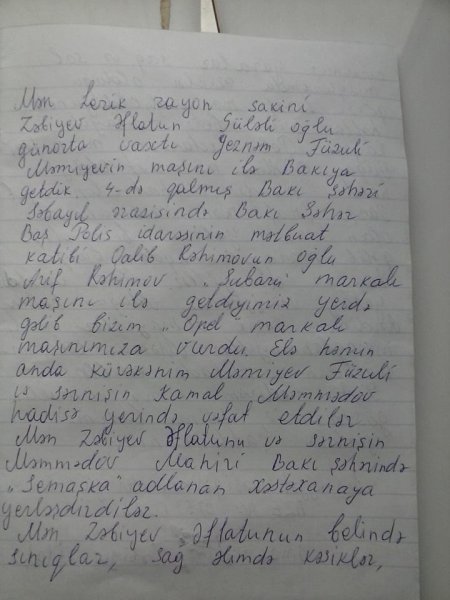 Mən Lerik rayon sakini
Zəbiyev Əflatun Güləli oğlu
günorta vaxtı yeznəm Füzuli
Məmıyevin maşını ilə Bakıya
getdik. 4-də qalmış Bakı şəhəri
Səbayıl ərazisində Bakı Şəhər
Baş Polis idarəsinin mətbuat
katibi Qalib Rəhimovun oğlu
Arif Rəhimov „Subaru" markalı
maşını ilə getdiyimiz yerdə
gəlib bizim „Opel markalı
maşınımıza vurdu. Elə həmin
anda kürəkənim Məmıyev Füzuli
və sərnişin Kamal Məmmədov
hadisə yerində vəfat etdilər
Mən Zəbiyev Əflatunu və sərnişin
Məmmədov Mahiri Bakı şəhərində
„Semaşka" adlanan xəstəxanaya
yerləşdirdilər.
Mən Zəbiyev Əflatunun belində
sınıqlar, sağ əlimdə kəsiklər,